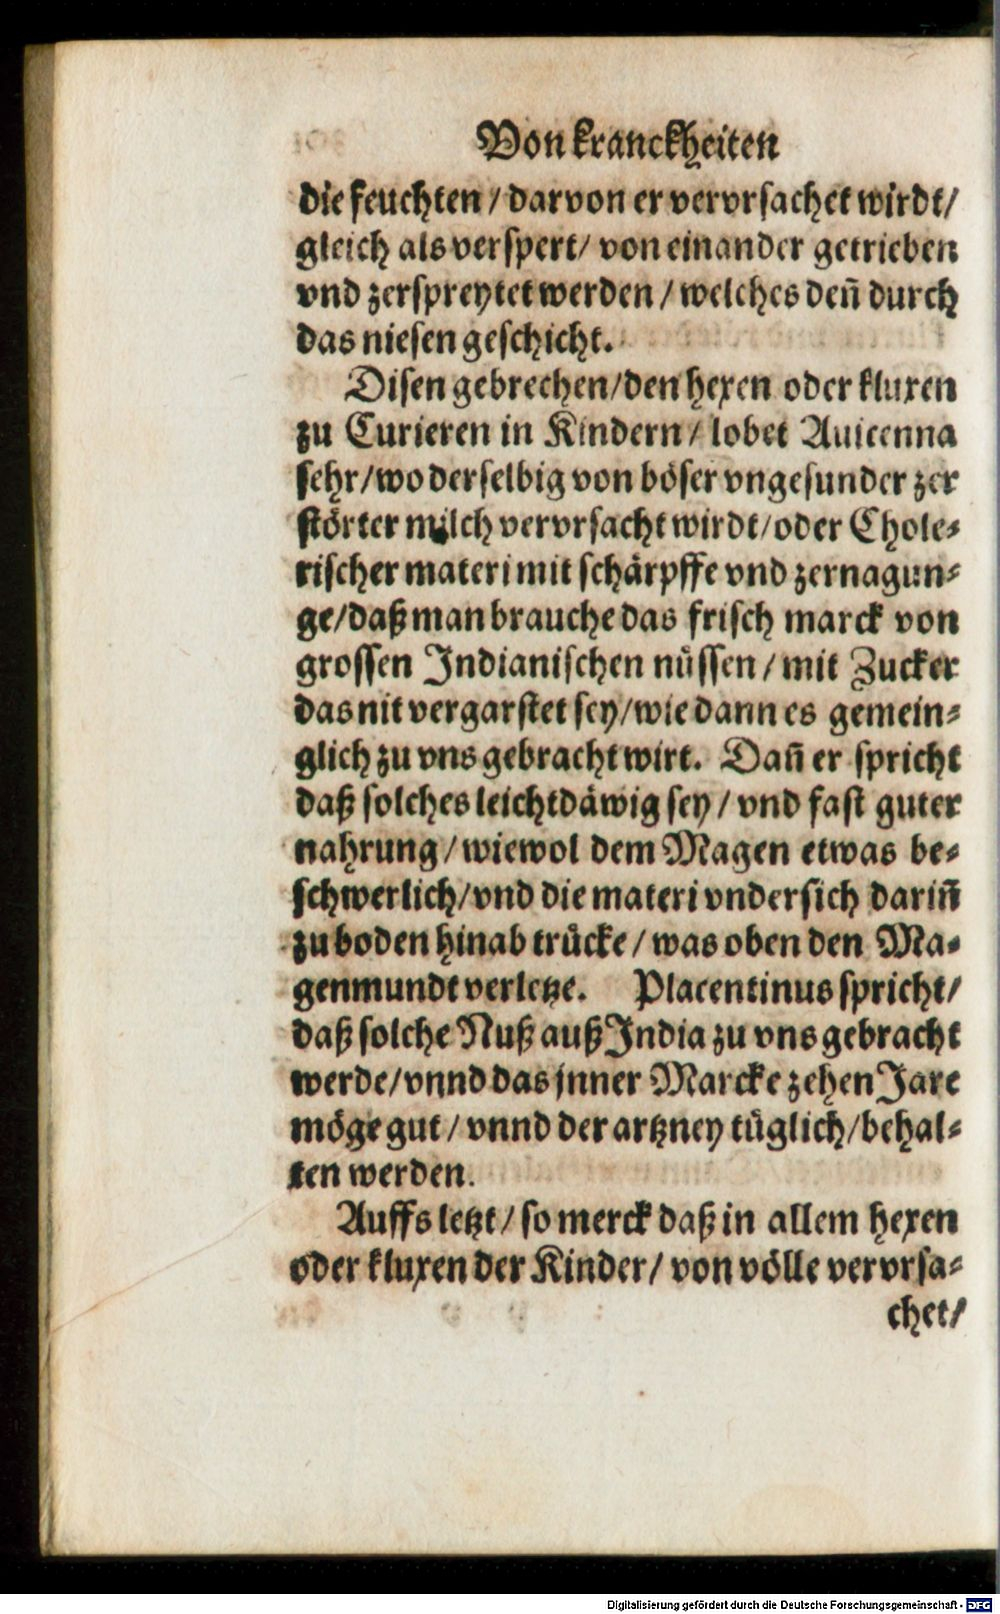 Von kranckheiten
die feuchten / darvon er vervrsachet wirdt/
gleich als verspert/ von einander getrieben
vnd zerspreytet werden / welches deñ durch
das niesen geschicht.
Disen gebrechen/den hexen oder kluxen
zu Curieren in Kindern / lobet Auicenna
sehr/wo derselbig von böser vngesunder zer
störter milch vervrsacht wirdt/oder Chole-
rischer materi mit schärpffe vnd zernagun-
ge/daß man brauche das frisch marck von
grossen Indianischen nüssen / mit Zucker
das nit vergarstet sey/wie dann es gemein-
glich zu vns gebracht wirt. Dañ er spricht
daß solches leichtdäwig sey / vnd fast guter
nahrung / wiewol dem Magen etwas be-
schwerlich/vnd die materi vndersich dariñ
zu boden hinab trücke / was oben den Ma-
genmundt verletze. Placentinus spricht/
daß solche Nuß auß India zu vns gebracht
werde/vnnd das jnner Marcke zehen Jare
möge gut / vnnd der artzney tüglich/behal-
ten werden.
Auffs letzt / so merck daß in allem hexen
oder kluxen der Kinder / von völle vervrsa-
chet/
Digitalisierung gefördert durch die Deutsche Forschungsgemeinschaft - DFG